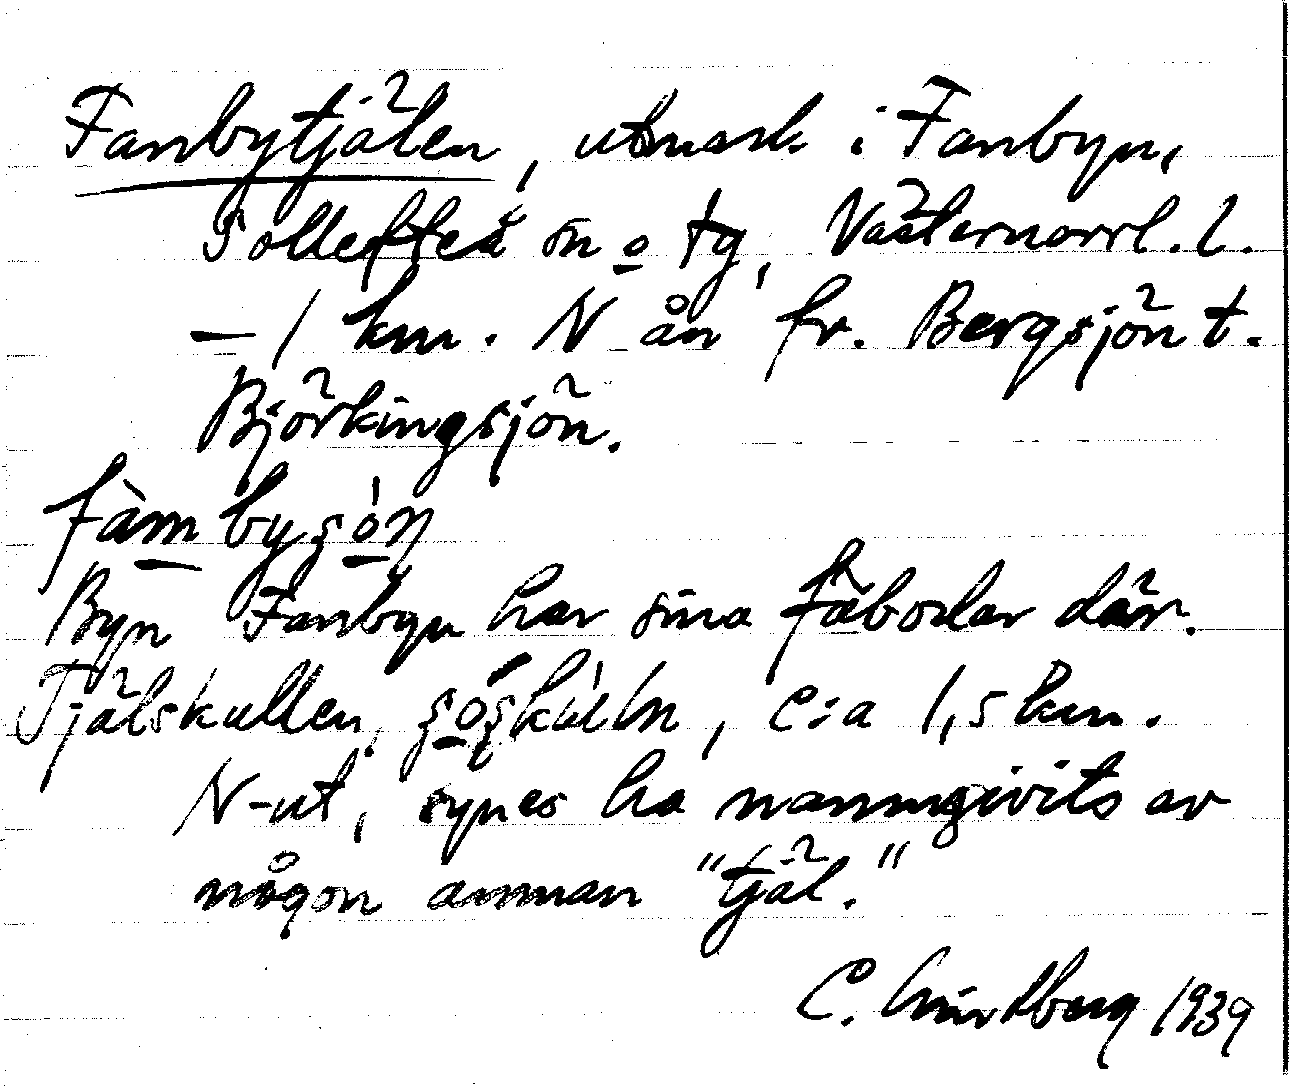 Fanbytjälen, utmark i Fanbyn,
Sollefteå sn o tg, Västernorrl. l.
— 1 km. N ån fr. Bergsjön t.
Björkingsjön.
Byn Fanbyn har sina fäbodar där.
Tjälskullen, c:a 1,5 km.
N-ut, synes ha namngivits av
någon annan "tjäl."
C. Lindberg 1939